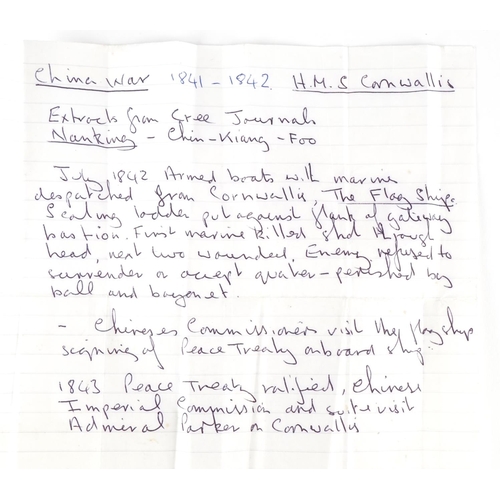 China War 1841 - 1842. H.M.S Cornwallis
Extracts from Cree Journals
Nanking - Chin-Kiang-Foo
July 1842 Armed boats with marines
despatched from Cornwallis, The Flag Ship.
Scaling ladder put against flank of gateway
bastion. First marine killed shot through
head, next two wounded. Enemy refused to
surrender or accept quater - perished by
ball and bayonet.
- Chineses Commissioners visit the flagship
signing of Peace Treaty onboard ship.
1843 Peace Treaty ratified, Chinese
Imperial Commission and suite visit
Admiral Parker on Cornwallis